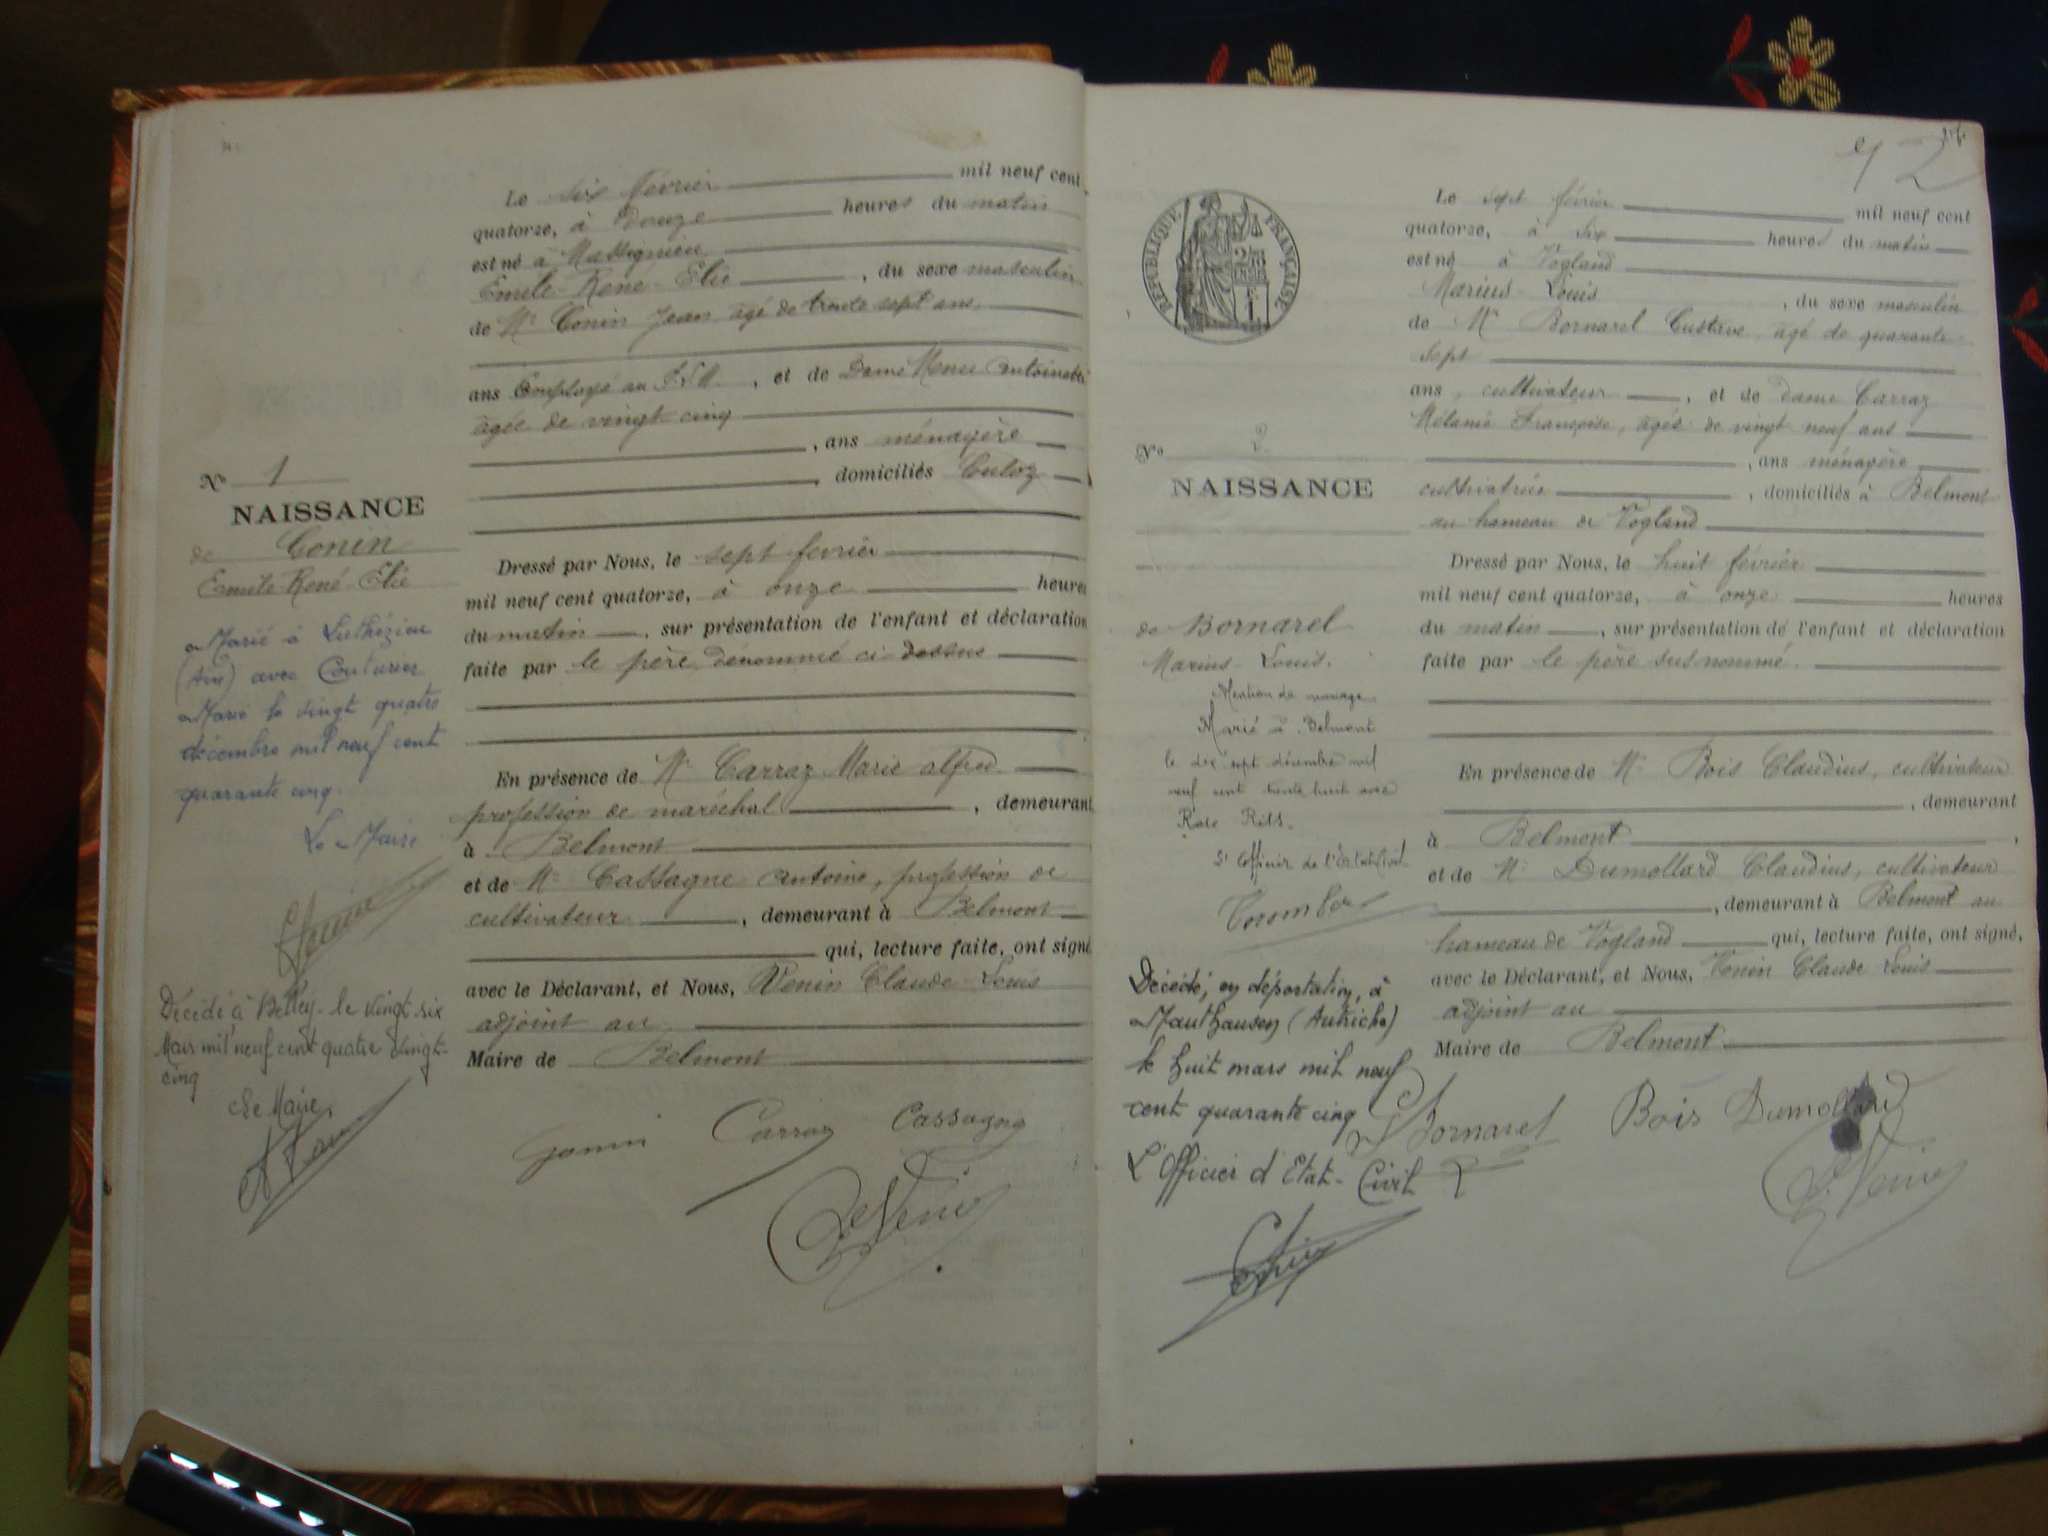 Le six février mil neuf cent
quatorze, à Douze heures du matin
est né à Massignieu
Emile René Elie, du sexe masculin
de Mr Jean, âgé de trente sept ans
ans Employé au P.L.M., et de Dame Antoinette
âgée de vingt cinq
, ans ménagère
, domiciliés Culoz
No 1
NAISSANCE
de
Emile René Elie
Dressé par Nous, le sept février
mil neuf cent quatorze, à onze heures
du matin, sur présentation de l'enfant et déclaration
faite par le père dénommé ci-dessus
En présence de Mr Carraz Marie alfred
profession de maréchal, demeurant
à Belmont
et de Mr Cassagne Antoine, profession de
cultivateur, demeurant à Belmont
qui, lecture faite, ont signé
avec le Déclarant, et Nous, Venin Claude Louis
adjoint au
Maire de Belmont
Marié à Luthézieu
(Ain) avec Couturier
Marie le vingt quatre
décembre mil neuf cent
quarante cinq.
Le Maire
Décédé à Belley le vingt six
Mars mil neuf cent quatre vingt-
cinq
Le Maire
Carraz Cassagne
Venin
RÉPUBLIQUE FRANÇAISE
Le sept février mil neuf cent
quatorze, à six heures du matin
est né à Vogland
Marius Louis, du sexe masculin
de Mr Bornarel Gustave, âgé de quarante
sept
ans, cultivateur, et de dame Carraz
Mélanie Françoise, âgée de vingt neuf ans
, ans ménagère
cultivatrice, domiciliés à Belmont
au hameau de Vogland
No 2
NAISSANCE
de Bornarel
Marius Louis.
Dressé par Nous, le huit février
mil neuf cent quatorze, à onze heures
du matin, sur présentation de l'enfant et déclaration
faite par le père susnommé.
En présence de Mr Bois Claudius, cultivateur
, demeurant
à Belmont,
et de Mr Dumollard Claudius, cultivateur
, demeurant à Belmont au
hameau de Vogland qui, lecture faite, ont signé,
avec le Déclarant, et Nous, Venin Claude Louis
adjoint au
Maire de Belmont
Mention de mariage
Marié à Belmont
le dix sept décembre mil
neuf cent trente huit avec
L'Officier de l'Etat Civil
Décédé, en déportation, à
Mauthausen (Autriche)
le huit mars mil neuf
cent quarante cinq
L'Officier d'Etat-Civil
Bornarel Bois Dumollard
Venin